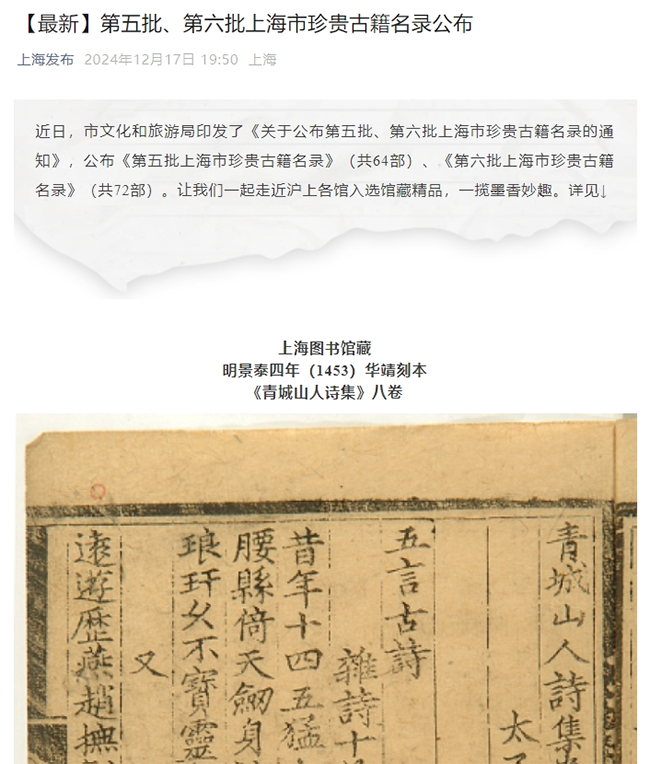 【最新】第五批、第六批上海市珍贵古籍名录公布
上海发布 2024年12月17日 19:50 上海
近日，市文化和旅游局印发了《关于公布第五批、第六批上海市珍贵古籍名录的通
知》，公布《第五批上海市珍贵古籍名录》（共64部）、《第六批上海市珍贵古籍
名录》（共72部）。让我们一起走近沪上各馆入选馆藏精品，一揽墨香妙趣。详见↓
上海图书馆藏
明景泰四年（1453）华靖刻本
《青城山人诗集》八卷
青城山人詩集
太
五言古詩
雜詩十
昔年十四五猛
腰縣倚天劒身
琅玕久不寶靈
又
遠遊歷燕趙撫